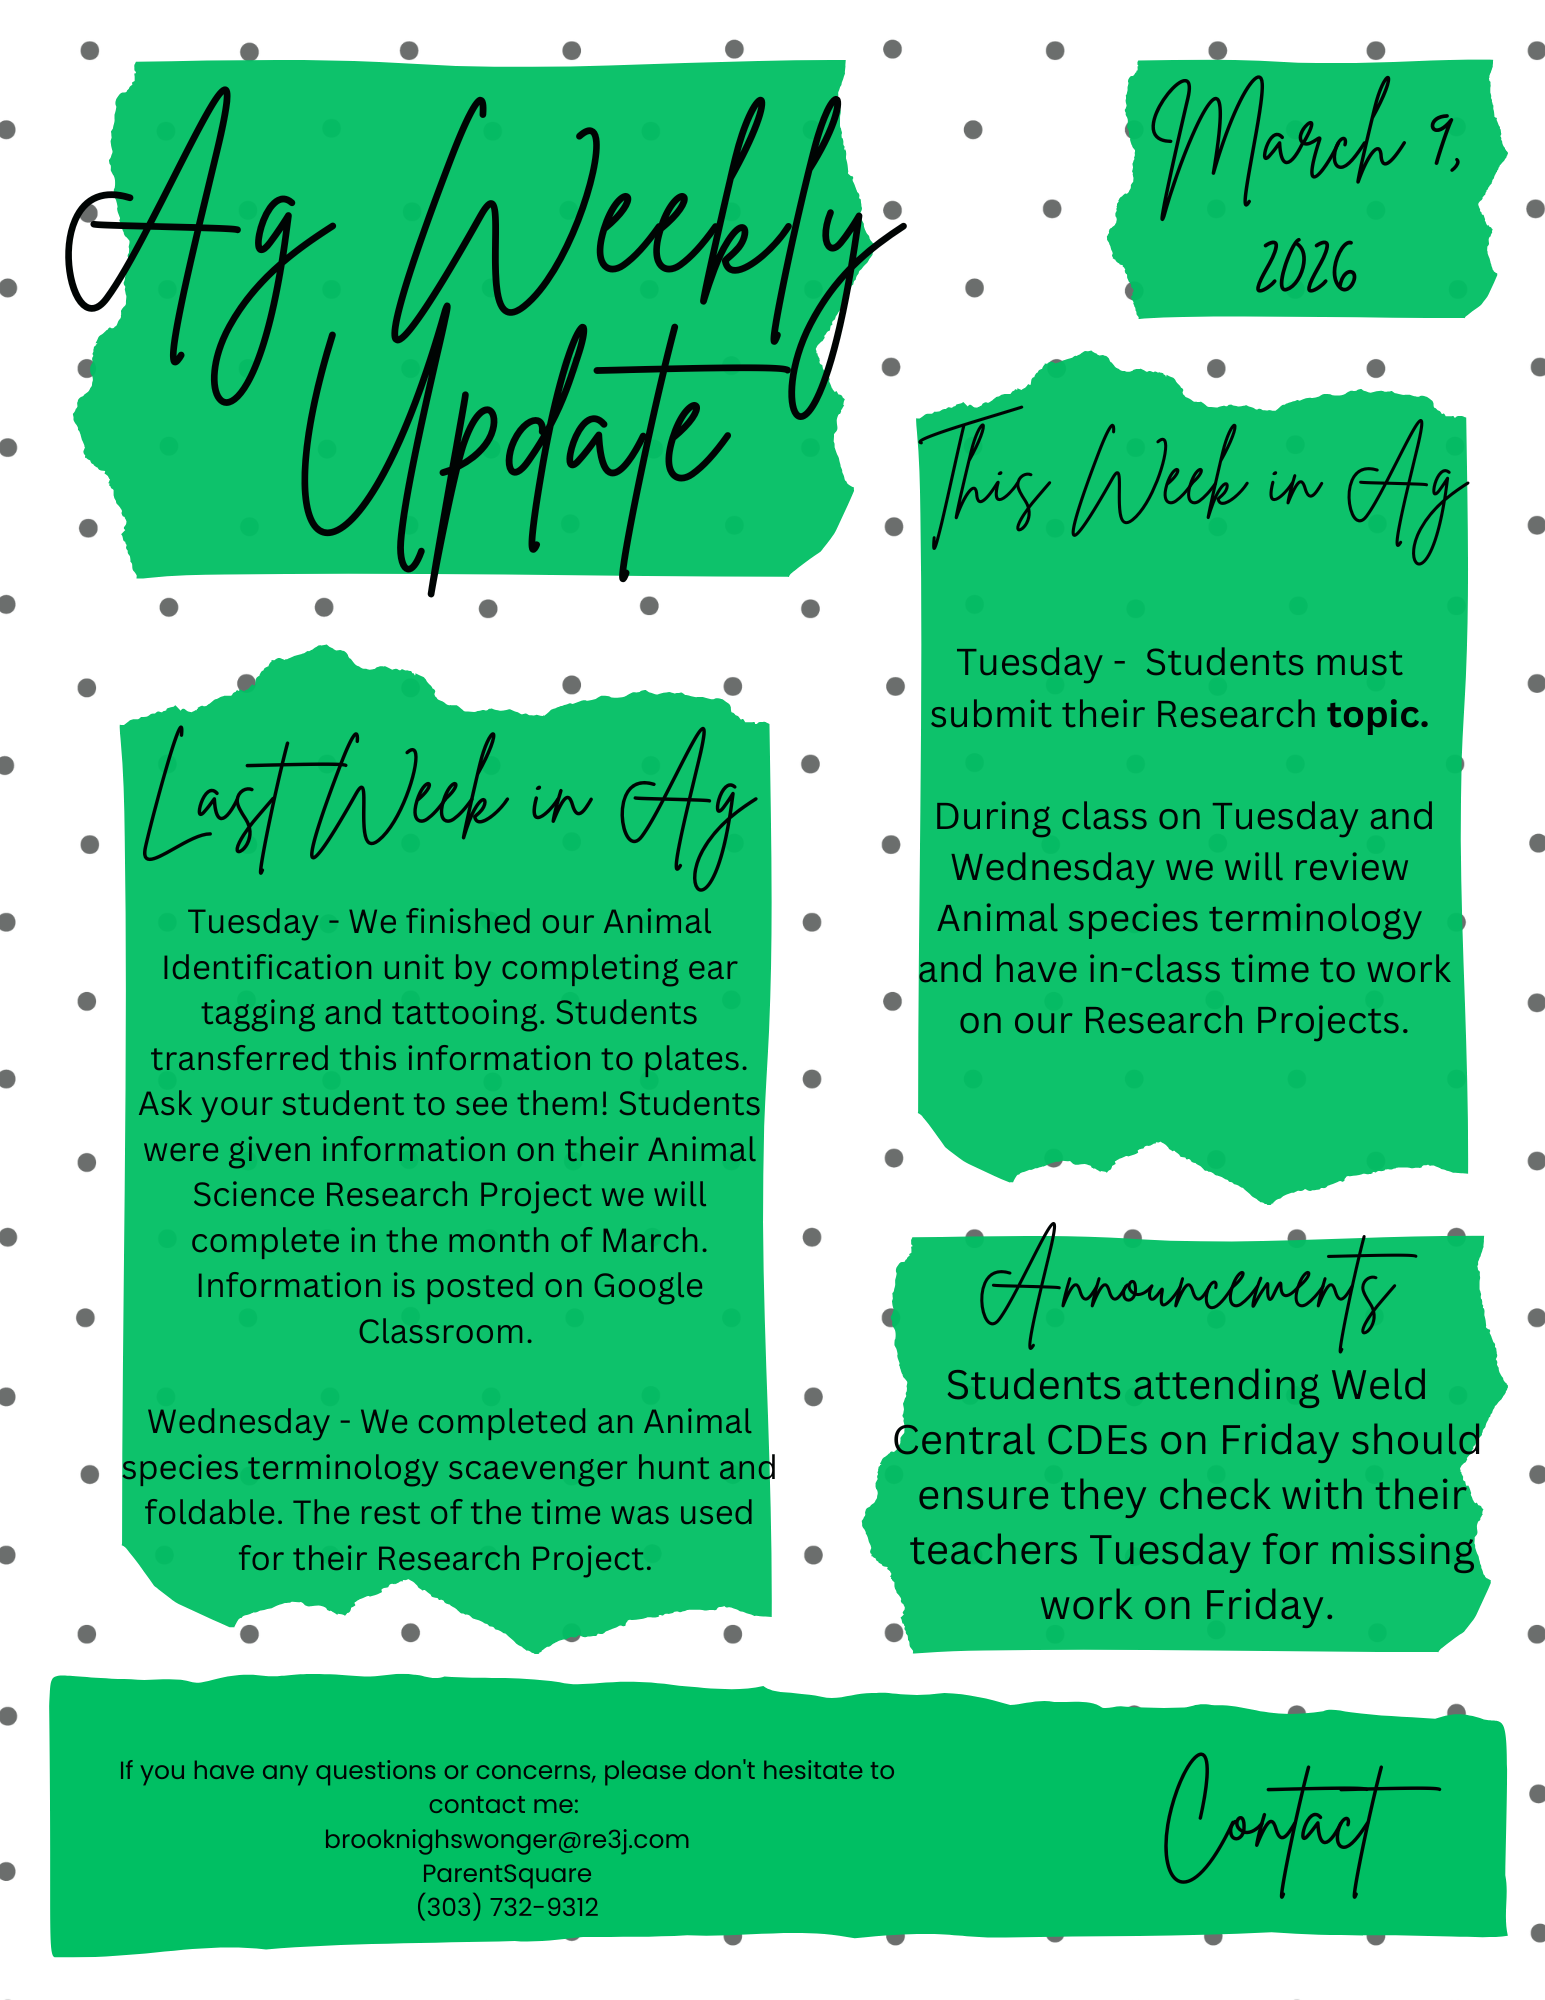 Ag Weekly
Update
March 9,
2026
This Week in Ag
Tuesday -  Students must
submit their Research topic.
During class on Tuesday and
Wednesday we will review
Animal species terminology
and have in-class time to work
on our Research Projects.
Last Week in Ag
Tuesday - We finished our Animal
Identification unit by completing ear
tagging and tattooing. Students
transferred this information to plates.
Ask your student to see them! Students
were given information on their Animal
Science Research Project we will
complete in the month of March.
Information is posted on Google
Classroom.
Wednesday - We completed an Animal
species terminology scaevenger hunt and
foldable. The rest of the time was used
for their Research Project.
Announcements
Students attending Weld
Central CDEs on Friday should
ensure they check with their
teachers Tuesday for missing
work on Friday.
If you have any questions or concerns, please don't hesitate to
contact me:
brooknighswonger@re3j.com
ParentSquare
(303) 732-9312
Contact